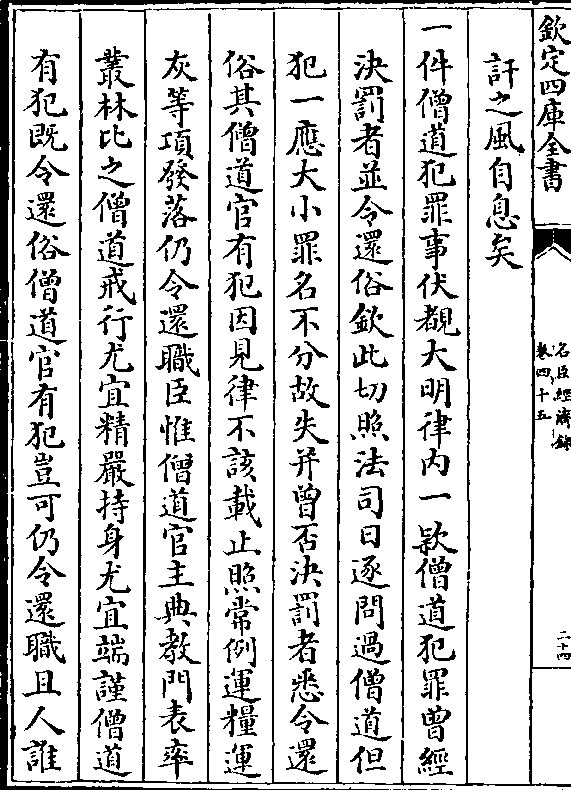 欽定四庫全書
名臣經濟錄
卷四十五
二十四
訐之風自息矣
一件僧道犯罪事伏覩大明律内一欵僧道犯罪曾經
決罰者並令還俗欽此切照法司日逐問過僧道但
犯一應大小罪名不分故失并曾否決罰者悉令還
俗其僧道官有犯因見律不該載止照常例運糧運
灰等項發落仍令還職臣惟僧道官主典教門表率
叢林比之僧道戒行尤宜精嚴持身尤宜端謹僧道
有犯既令還俗僧道官有犯豈可仍令還職且人誰